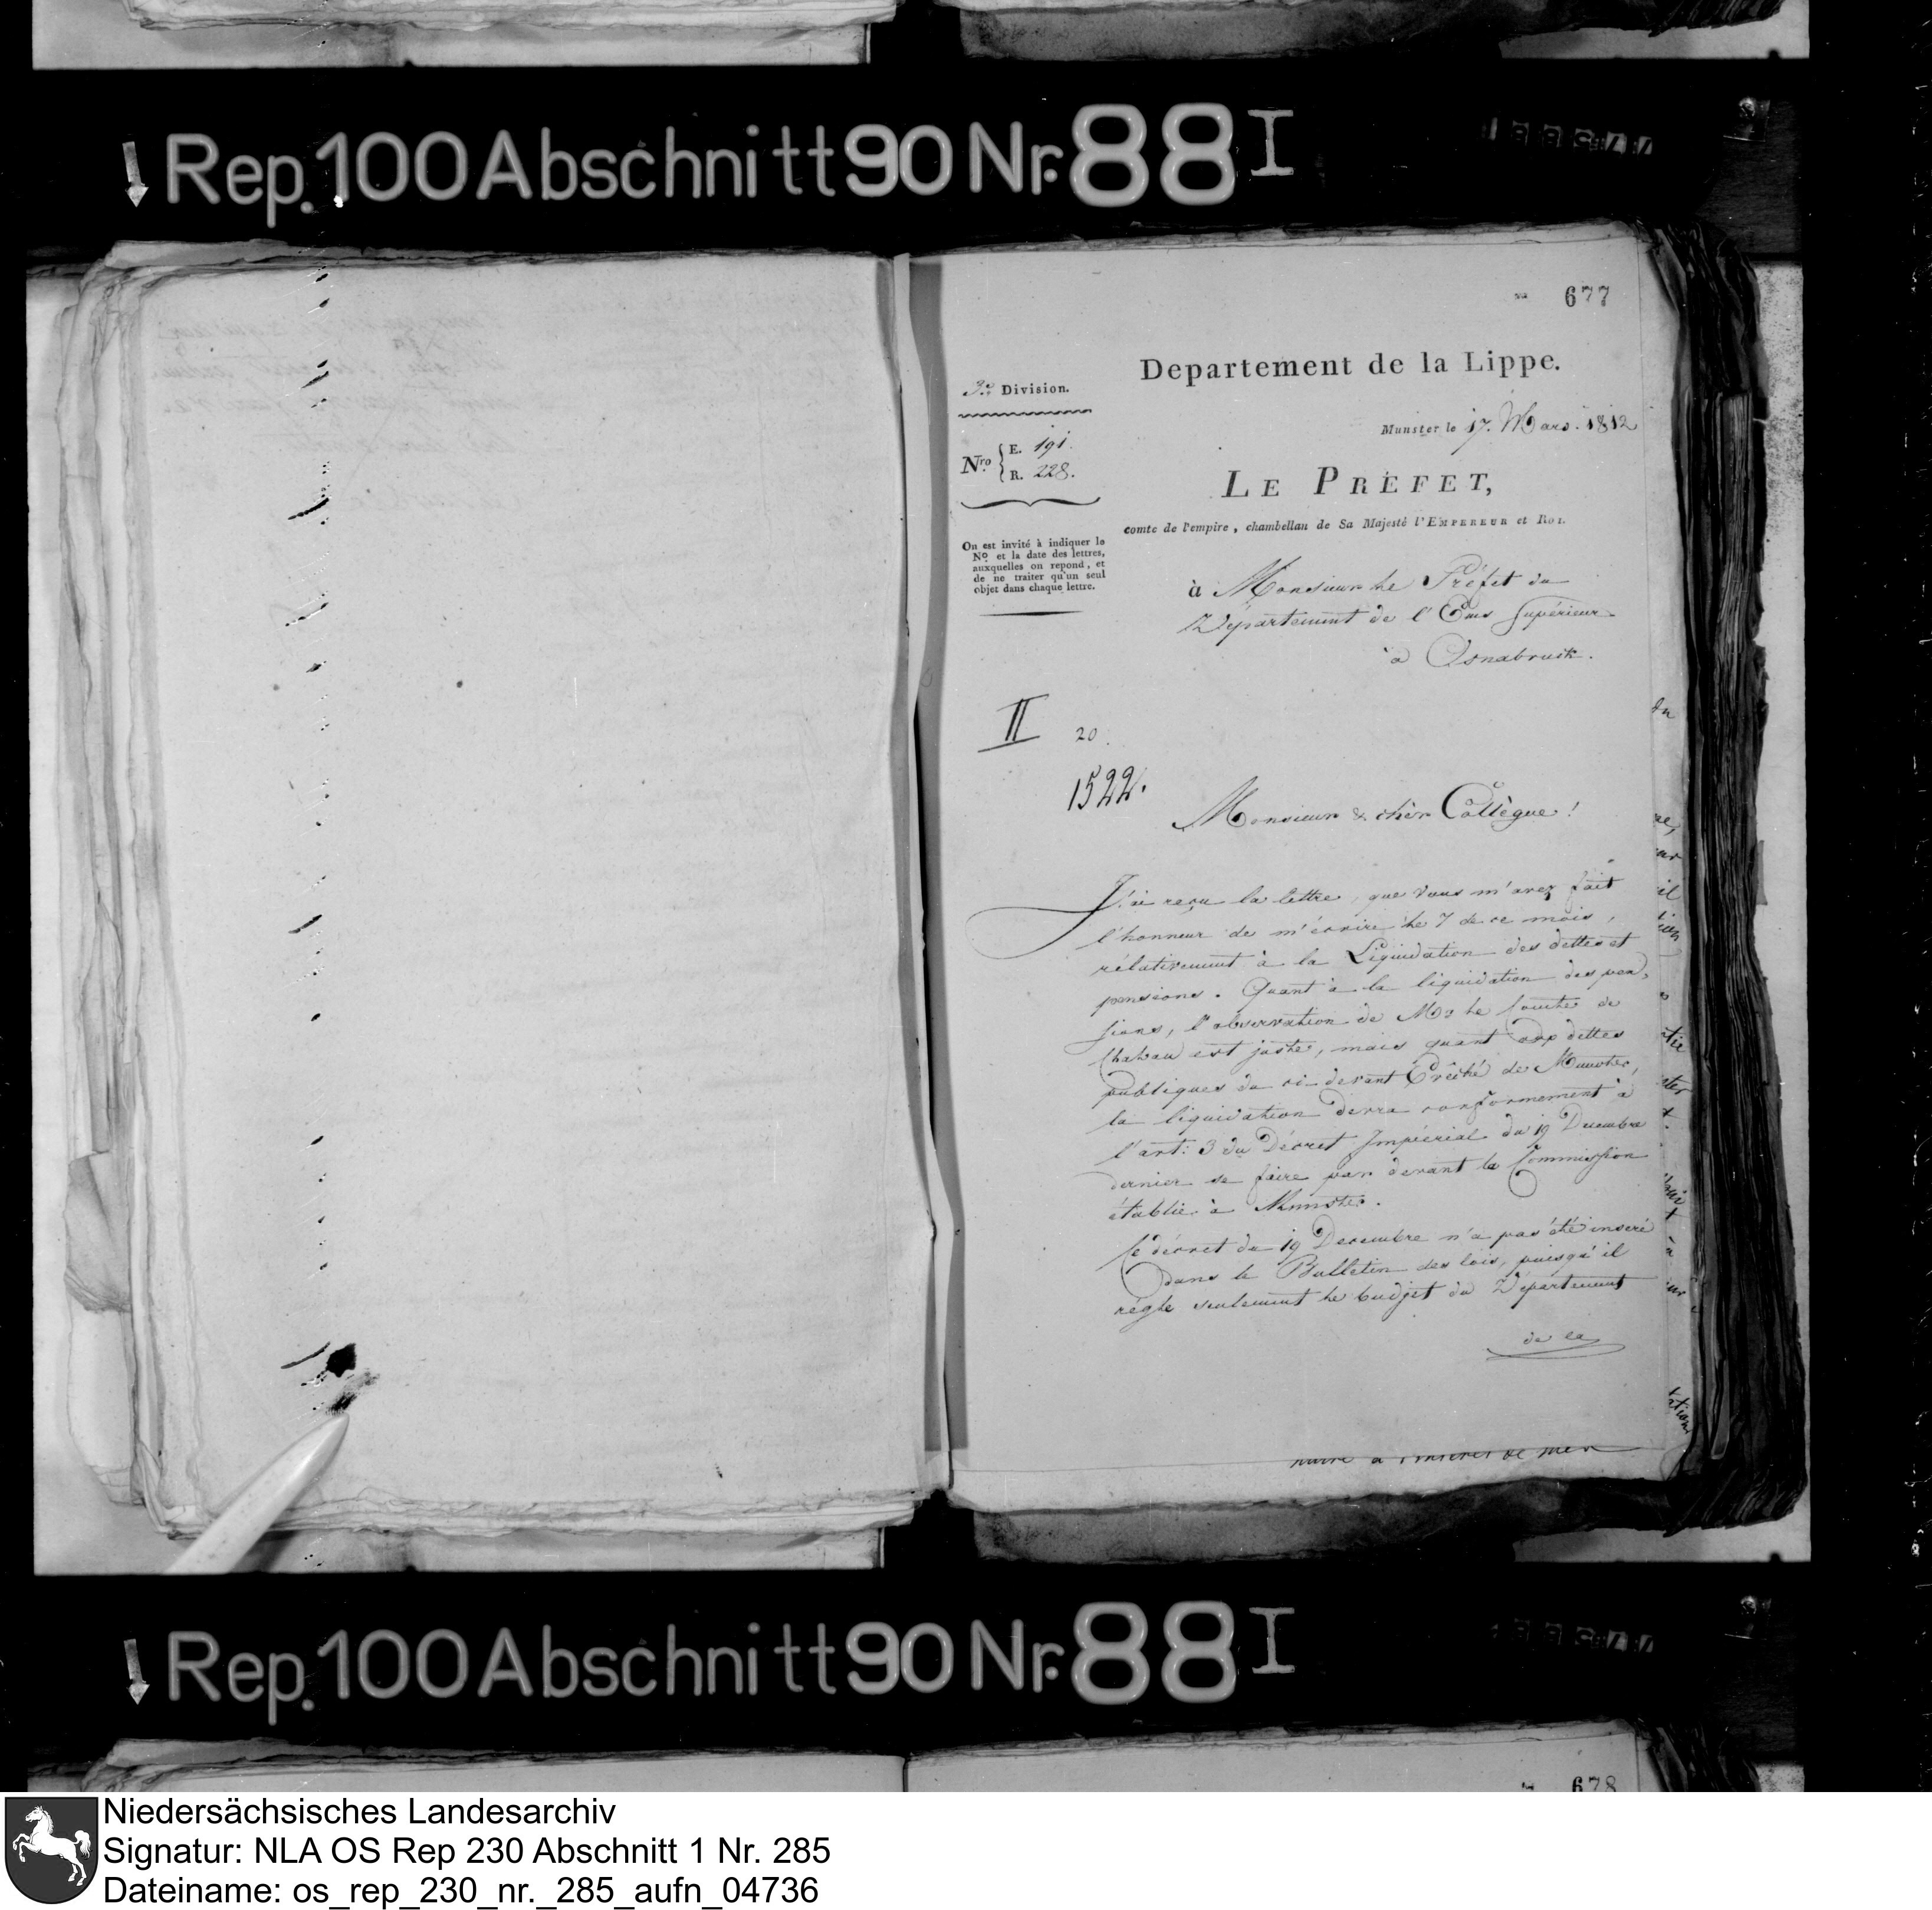 Rep. 100 Abschnitt 90 Nr. 88 I
677
Departement de la Lippe.
3e Division.
Munster le 17. Mars. 1812
Nro E. 191.
R. 228.
LE PRÉFET,
comte de l'empire, chambellan de Sa Majesté l'EMPEREUR et ROI.
On est invité à indiquer le
No. et la date des lettres,
auxquelles on repond, et
de ne traiter qu'un seul
objet dans chaque lettre.
à Monsieur le Préfet du
Département de l'Ems Supérieur
à Osnabruck.
II 20.
1522.
Monsieur & cher Collègue!
J'ai reçu la lettre, que vous m'avez fait
l'honneur de m'écrire le 7 de ce mois,
rélativement à la Liquidation des dettes et
pensions. Quant à la liquidation des pen,
sions, l'observation de Mr le Comte de
Chaban est juste, mais quant aux dettes
publiques du ci-devant Evêché de Munster,
la liquidation devra conformement à
l'art: 3 du Décret Impérial du 19 Decembre
dernier se faire par devant la Commission
établie à Munster.
Ce décret du 19 Decembre n'a pas été inseré
dans le Bulletin des lois, puisqu'il
régle seulement le budjet du Département
de la
Rep. 100 Abschnitt 90 Nr. 88 I
678
Niedersächsisches Landesarchiv
Signatur: NLA OS Rep 230 Abschnitt 1 Nr. 285
Dateiname: os_rep_230_nr._285_aufn_04736